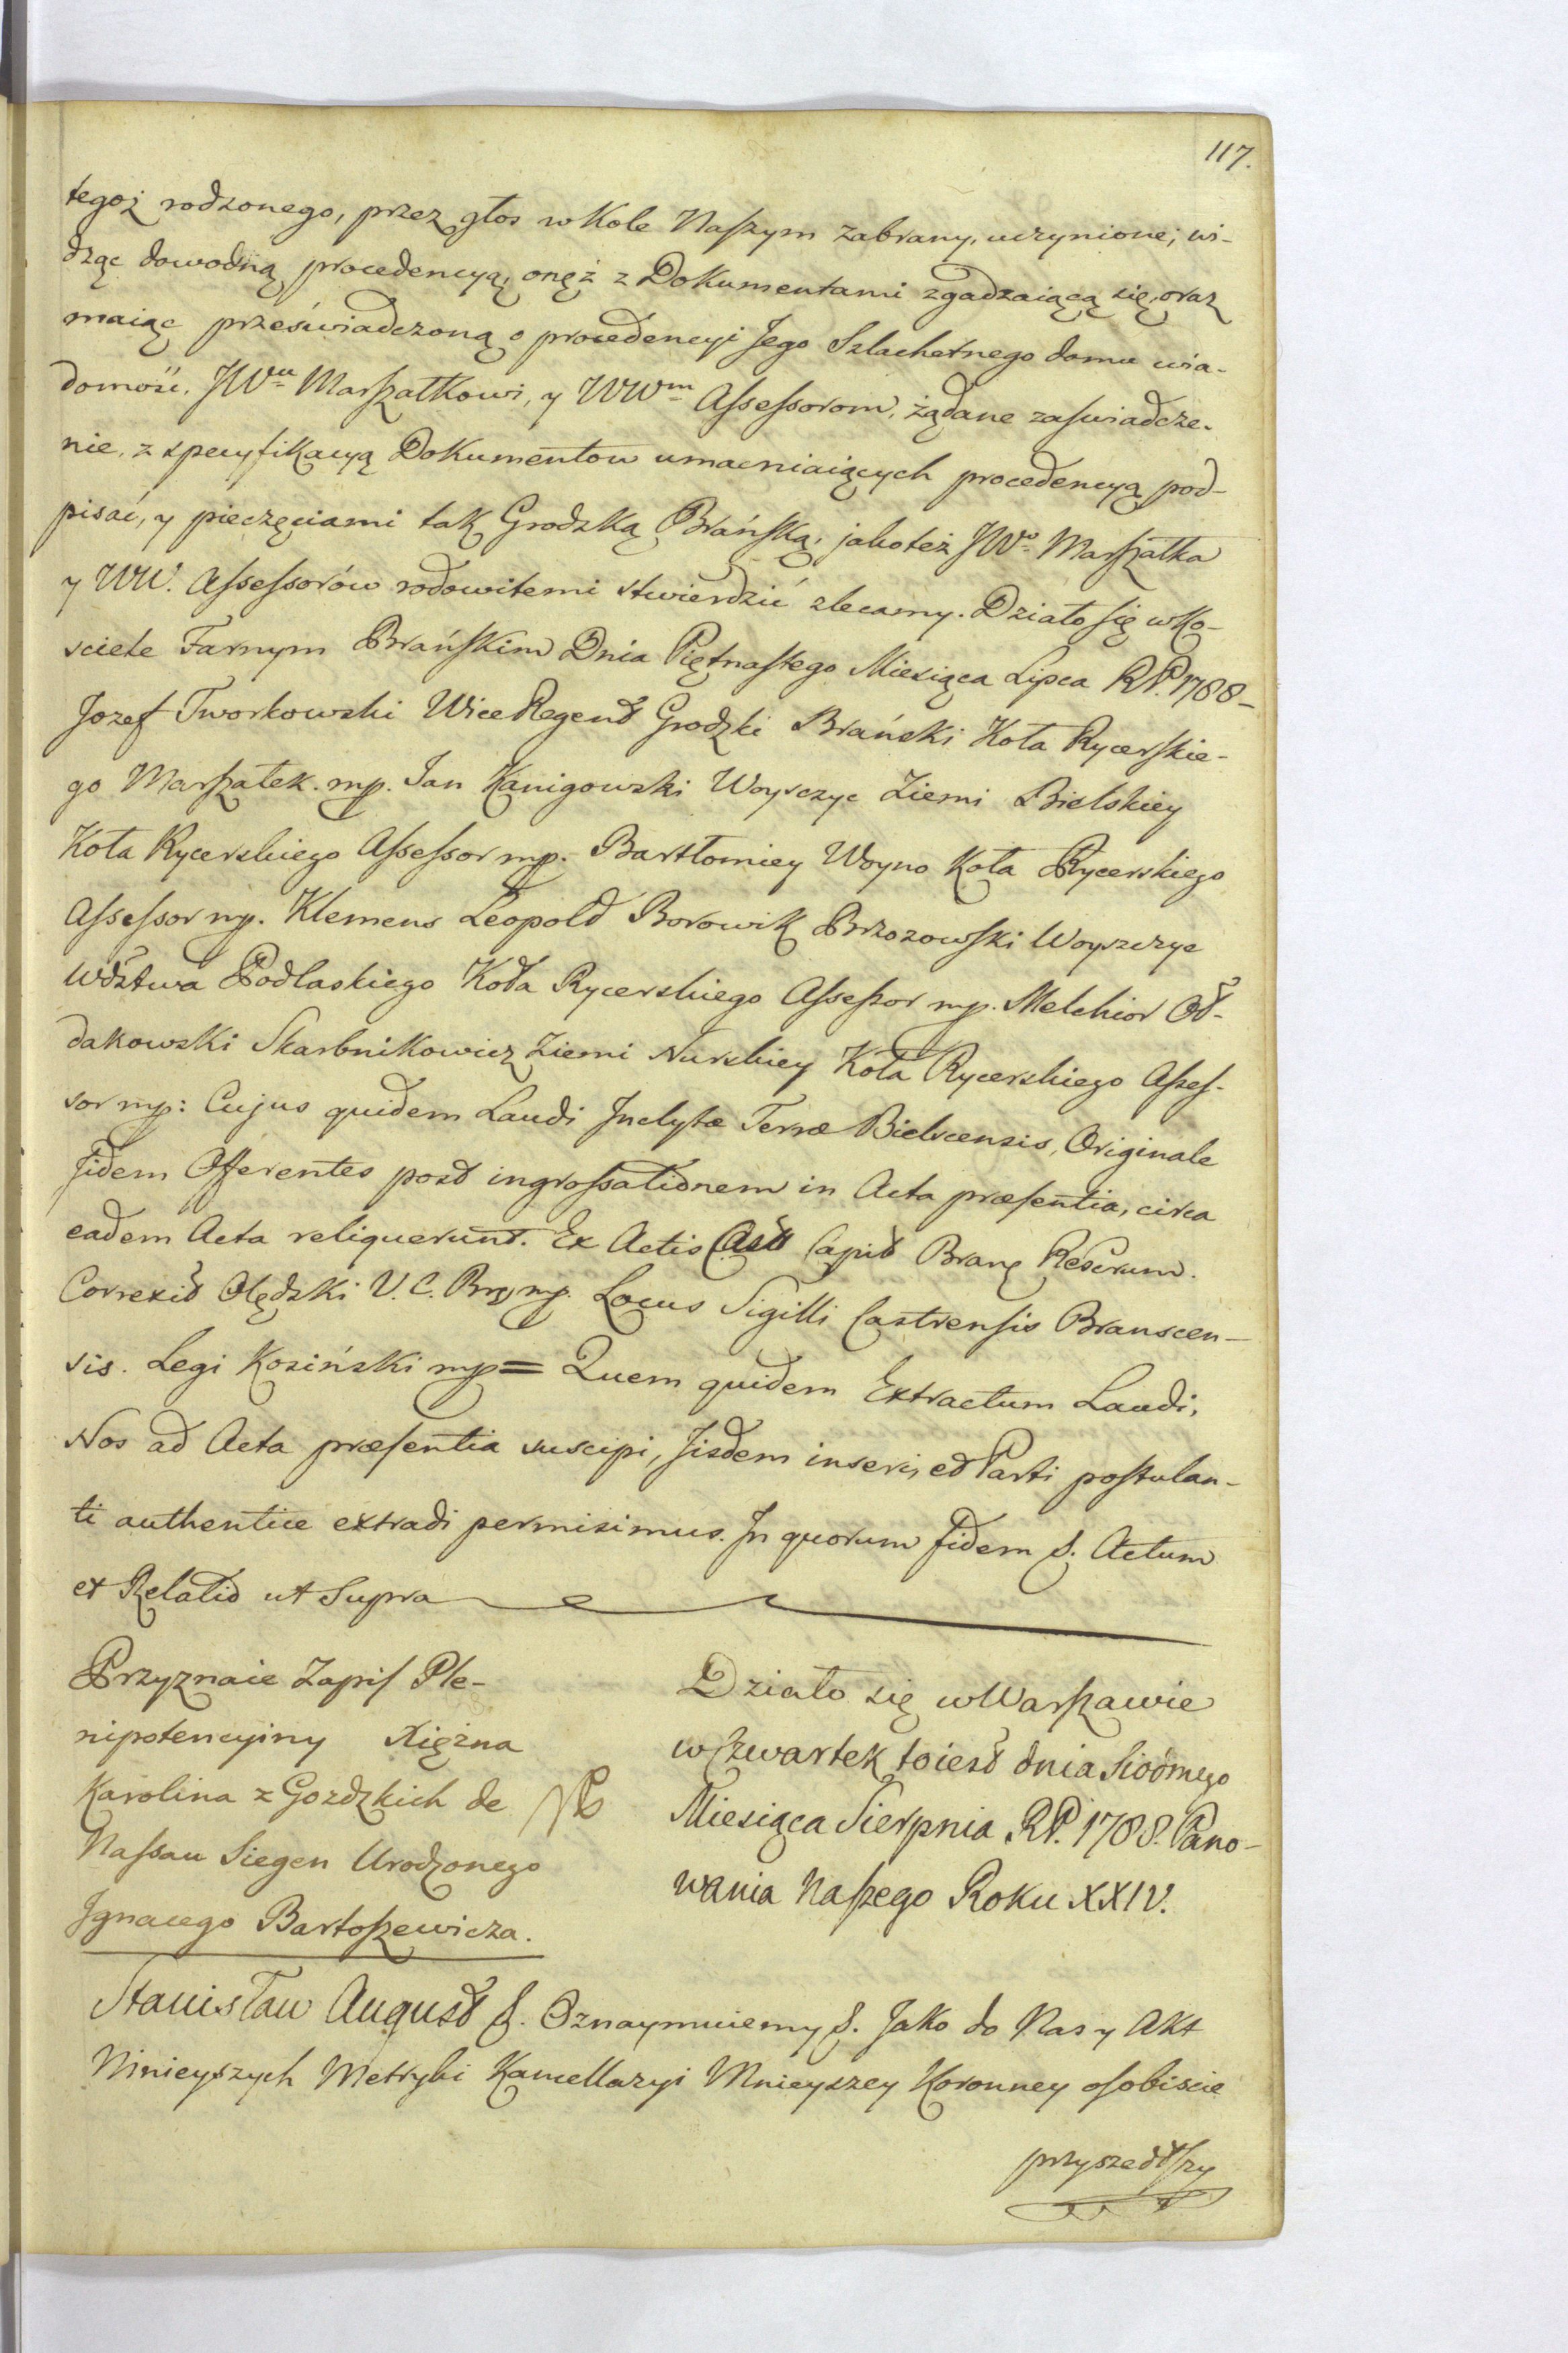 117.
tegoż rodzonego, przez głos w Kole Naszym zabrany, uczynione; wi-
dząc dowodną procedencyą, onęż z Dokumentami zgadzaiącą się, oraz
maiąc przeświadczoną o procedencyi Jego Szlachetnego domu wia-
domość. JWu Marszałkowi, y WWm Assessorom, żądane zaswiadcze-
nie, z specyfikacyą Dokumentow umacniaiących procedencyą pod-
pisać, y pieczęciami tak Grodzką Brańską, jakoteż JWo Marszałka
y WW. Assessorów rodowitemi stwierdzić zlecamy. Działo się w Ko-
sciele Farnym Brańskim Dnia Piętnastego Miesiąca Lipca RP. 1788-
Jozef Tworkowski Wice Regent Grodzki Brański Koła Rycerskie-
go Marszałek. mp. Jan Kanigowski Woyszczyc Ziemi Bielskiey
Koła Rycerskiego Assessor mp. Bartłomiey Woyno Koła Rycerskiego
Assessor mp. Klemens Leopold Borowik Brzozowski Woyszczyc
Wdztwa Podlaskiego Koła Rycerskiego Assessor mp. Melchior Oł-
dakowski Skarbnikowicz Ziemi Nurskiey Koła Rycerskiego Asses-
sor mp: Cujus quidem Laudi Inclytæ Terræ Bielscensis, Originale
Fidem Offerentes post ingrossationem in Acta præsentia, circa
eadem Acta reliquerunt. Ex Actis Cast Capit Brang Rescrum.
Correxit Olędzki V. C. Brg mp. Locus Sigilli Castrensis Branscen-
sis. Legi Kosiński mp = Quem quidem Extractum Laudi,
Nos ad Acta præsentia suscipi, Iisdem inseri, et Parti postulan-
ti authentice extradi permisimus. In quorum fidem &. Actum
et Relatio ut Supra
Przyznaie Zapis Ple-
nipotencyiny Xiężna
Karolina z Gozdzkich de
Nassau Siegen Urodzonego
Ignacego Bartoszewicza.
Działo się w Warszawie
w Czwartek to iest dnia Siódmego
Miesiąca Sierpnia RP. 1788. Pano-
wania Naszego Roku XXIV.
Stanisław August &. Oznaymuiemy &. Jako do Nas y Akt
Ninieyszych Metryki Kancellaryi Mnieyszey Koronney osobiscie
przyszedłszy